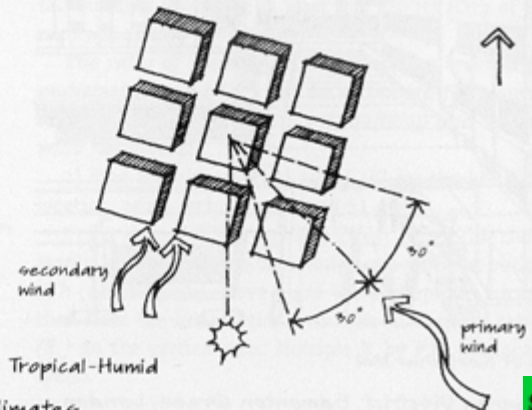 30°
30°
secondary
wind
primary
wind
Tropical-Humid
climates